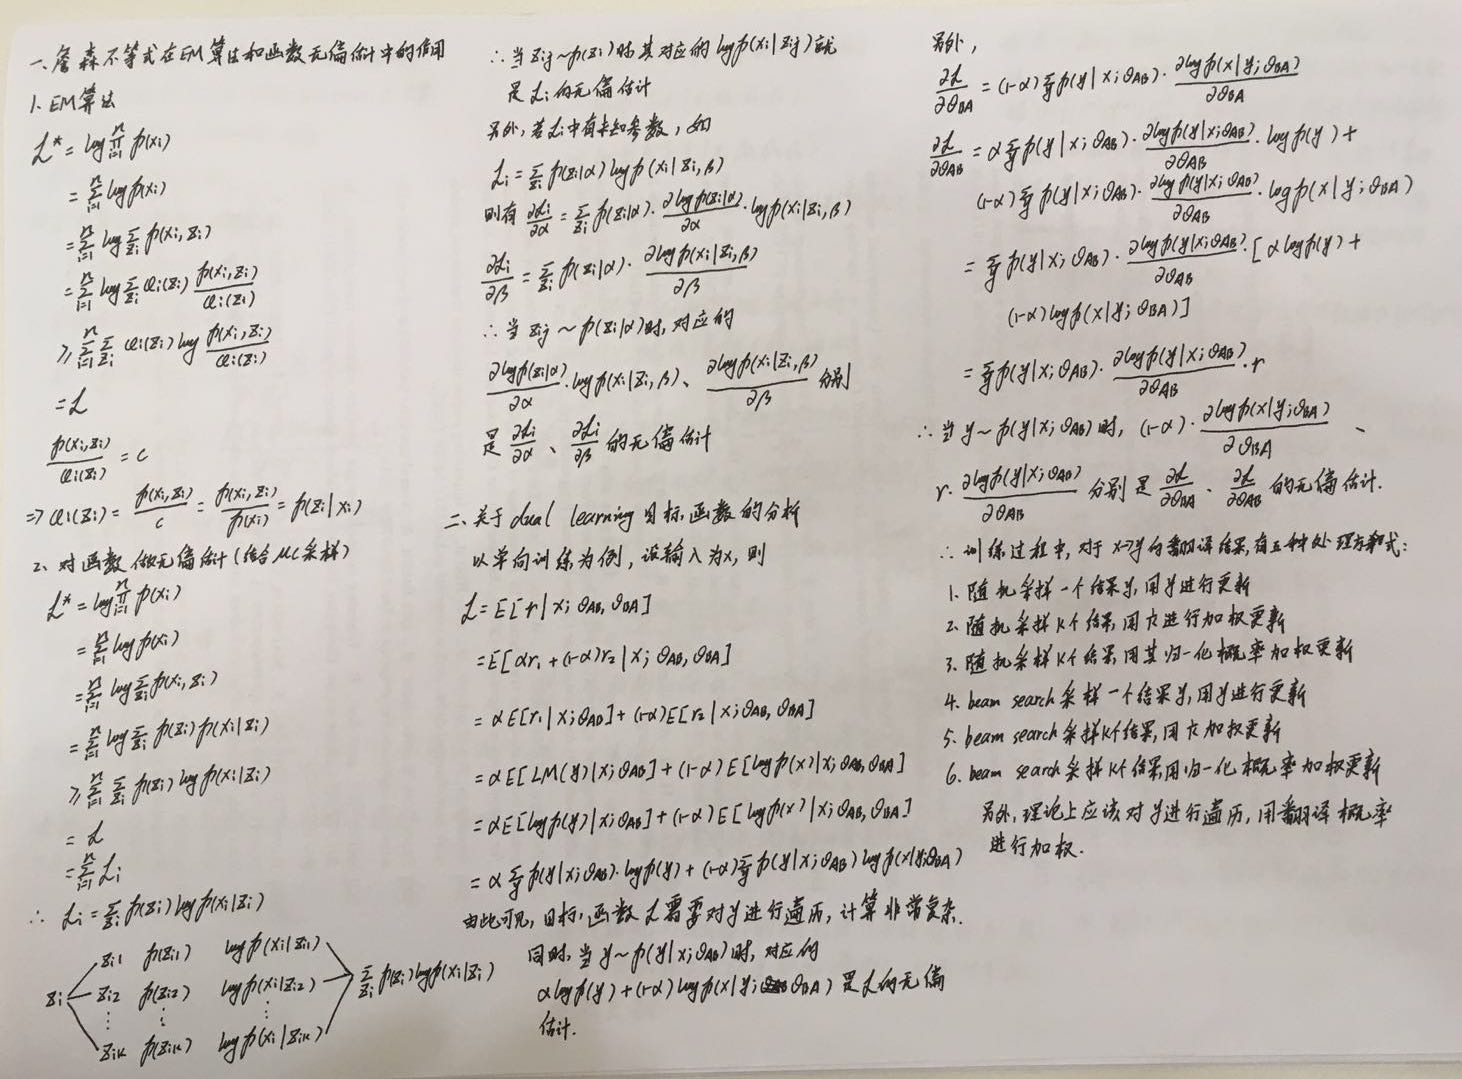 一、詹森不等式在EM算法和函数无偏估计中的作用
1. EM算法
L* = log ∏_{i=1}^{n} p(xi)
= ∑_{i=1}^{n} log p(xi)
= ∑_{i=1}^{n} log ∑_{zi} p(xi, zi)
= ∑_{i=1}^{n} log ∑_{zi} Qi(zi) p(xi, zi)/Qi(zi)
≥ ∑_{i=1}^{n} ∑_{zi} Qi(zi) log p(xi, zi)/Qi(zi)
= L
p(xi, zi)/Qi(zi) = c
⇒ Qi(zi) = p(xi, zi)/c = p(xi, zi)/p(xi) = p(zi|xi)
2. 对函数做无偏估计(结合MC采样)
L* = log ∏_{i=1}^{n} p(xi)
= ∑_{i=1}^{n} log p(xi)
= ∑_{i=1}^{n} log ∑_{zi} p(xi, zi)
= ∑_{i=1}^{n} log ∑_{zi} p(zi) p(xi|zi)
≥ ∑_{i=1}^{n} ∑_{zi} p(zi) log p(xi|zi)
= L
= ∑_{i=1}^{n} Li
∴ Li = ∑_{zi} p(zi) log p(xi|zi)
zi1 p(zi1) log p(xi|zi1)
zi zi2 p(zi2) log p(xi|zi2) ∑_{zi} p(zi) log p(xi|zi)
⋮ ⋮ ⋮
zik p(zik) log p(xi|zik)
∴ 当 zij ~ p(zi) 时,其对应的 log p(xi|zij) 就
是 Li 的无偏估计
另外,若Li中有未知参数,如
Li = ∑_{zi} p(zi|α) log p(xi|zi, β)
则有 ∂Li/∂α = ∑_{zi} p(zi|α) · ∂log p(zi|α)/∂α · log p(xi|zi, β)
∂Li/∂β = ∑_{zi} p(zi|α) · ∂log p(xi|zi, β)/∂β
∴ 当 zij ~ p(zi|α) 时,对应的
∂log p(zi|α)/∂α · log p(xi|zi, β)、∂log p(xi|zi, β)/∂β 分别
是 ∂Li/∂α、∂Li/∂β 的无偏估计
二、关于 dual learning 目标函数的分析
以单向训练为例,设输入为x,则
L = E[r|x; θAB, θBA]
= E[αr1 + (1-α)r2 | x; θAB, θBA]
= αE[r1|x; θAB] + (1-α)E[r2|x; θAB, θBA]
= αE[LM(y)|x; θAB] + (1-α)E[log p(x)|x; θAB, θBA]
= αE[log p(y)|x; θAB] + (1-α)E[log p(x')|x; θAB, θBA]
= α ∑_y p(y|x; θAB) · log p(y) + (1-α) ∑_y p(y|x; θAB) log p(x|y; θBA)
由此可见,目标函数L需要对y进行遍历,计算非常复杂.
同时,当 y ~ p(y|x; θAB) 时,对应的
α log p(y) + (1-α) log p(x|y; θBA) 是L的无偏
估计.
另外,
∂L/∂θBA = (1-α) ∑_y p(y|x; θAB) · ∂log p(x|y; θBA)/∂θBA
∂L/∂θAB = α ∑_y p(y|x; θAB) · ∂log p(y|x; θAB)/∂θAB · log p(y) +
(1-α) ∑_y p(y|x; θAB) · ∂log p(y|x; θAB)/∂θAB · log p(x|y; θBA)
= ∑_y p(y|x; θAB) · ∂log p(y|x; θAB)/∂θAB · [α log p(y) +
(1-α) log p(x|y; θBA)]
= ∑_y p(y|x; θAB) · ∂log p(y|x; θAB)/∂θAB · r
∴ 当 y ~ p(y|x; θAB) 时, (1-α) · ∂log p(x|y; θBA)/∂θBA 、
r · ∂log p(y|x; θAB)/∂θAB 分别是 ∂L/∂θBA、∂L/∂θAB 的无偏估计.
∴ 训练过程中,对于x→y的翻译结果,有五种处理方式:
1. 随机采样一个结果y,用y进行更新
2. 随机采样K个结果,用1/k进行加权更新
3. 随机采样K个结果,用其归一化概率加权更新
4. beam search采样一个结果y,用y进行更新
5. beam search采样K个结果,用1/k加权更新
6. beam search采样K个结果,用归一化概率加权更新
另外,理论上应该对y进行遍历,用翻译概率
进行加权.